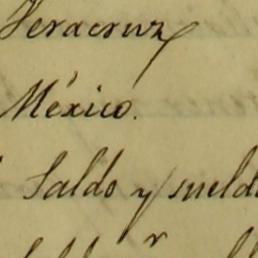 Veracruz
México.
Saldo y sueld